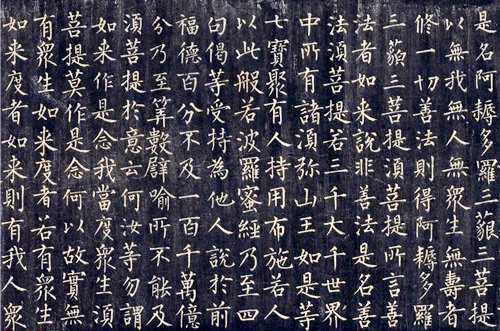 是名阿耨多羅三藐三菩提
以無我無人無衆生無壽者
修一切善法則得阿耨多羅
三藐三菩提須菩提所言善
法者如来說非善法是名善
法須菩提若三千大千世界
中所有諸須弥山王如是等
七寶聚有人持用布施若人
以此般若波羅蜜經乃至四
句偈等受持為他人說於前
福德百分不及一百千萬億
分乃至筭數譬喻所不能及
須菩提於意云何汝等勿謂
如来作是念我當度衆生須
菩提莫作是念何以故實無
有衆生如来度者若有衆生
如来度者如来則有我人衆